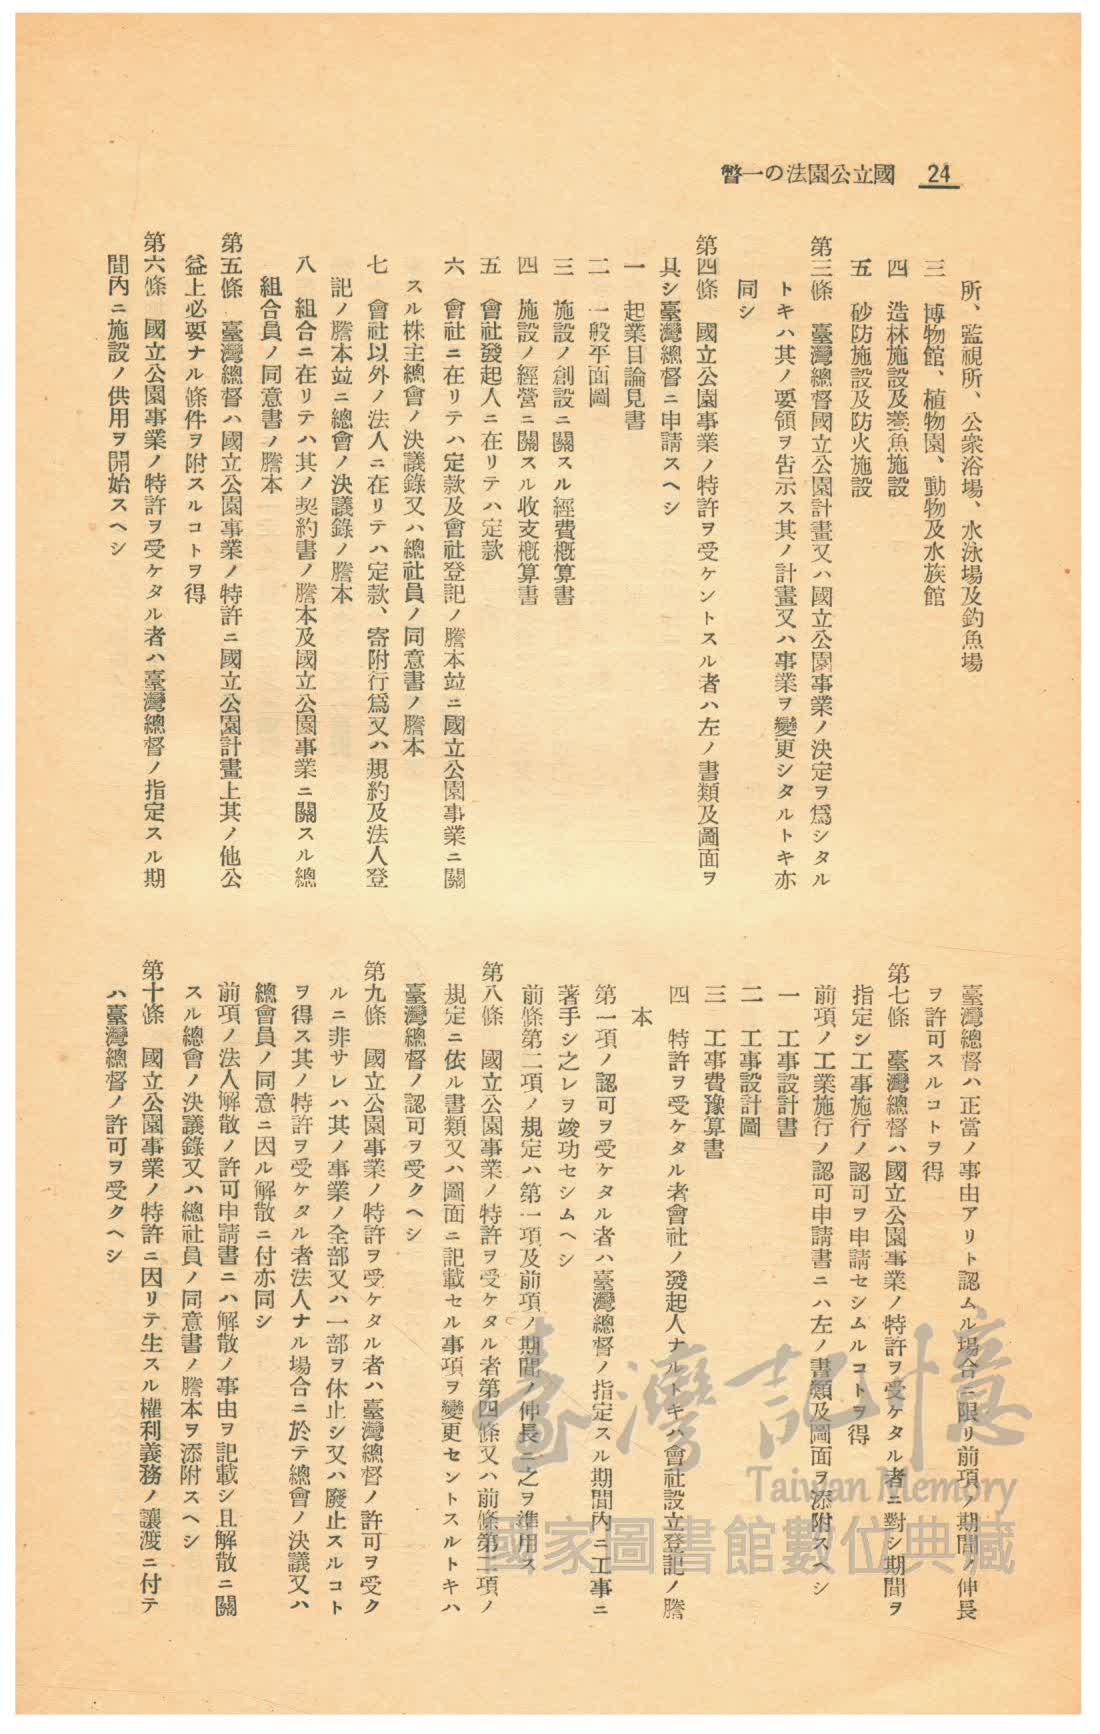 24 國立公園法の一瞥
所、監視所、公衆浴場、水泳場及釣魚場
三 博物館、植物園、動物及水族館
四 造林施設及養魚施設
五 砂防施設及防火施設
第三條 臺灣總督國立公園計畫又ハ國立公園事業ノ決定ヲ爲シタル
トキハ其ノ要領ヲ吿示ス其ノ計畫又ハ事業ヲ變更シタルトキ亦
同シ
第四條 國立公園事業ノ特許ヲ受ケントスル者ハ左ノ書類及圖面ヲ
具シ臺灣總督ニ申請スヘシ
一 起業目論見書
二 一般平面圖
三 施設ノ創設ニ關スル經費槪算書
四 施設ノ經營ニ關スル收支槪算書
五 會社發起人ニ在リテハ定款
六 會社ニ在リテハ定款及會社登記ノ謄本竝ニ國立公園事業ニ關
スル株主總會ノ決議錄又ハ總社員ノ同意書ノ謄本
七 會社以外ノ法人ニ在リテハ定款、寄附行爲又ハ規約及法人登
記ノ謄本竝ニ總會ノ決議錄ノ謄本
八 組合ニ在リテハ其ノ契約書ノ謄本及國立公園事業ニ關スル總
組合員ノ同意書ノ謄本
第五條 臺灣總督ハ國立公園事業ノ特許ニ國立公園計畫上其ノ他公
益上必要ナル條件ヲ附スルコトヲ得
第六條 國立公園事業ノ特許ヲ受ケタル者ハ臺灣總督ノ指定スル期
間內ニ施設ノ供用ヲ開始スヘシ
臺灣總督ハ正當ノ事由アリト認ムル場合ニ限リ前項ノ期間ノ伸長
ヲ許可スルコトヲ得
第七條 臺灣總督ハ國立公園事業ノ特許ヲ受ケタル者ニ對シ期間ヲ
指定シ工事施行ノ認可ヲ申請セシムルコトヲ得
前項ノ工業施行ノ認可申請書ニハ左ノ書類及圖面ヲ添附スヘシ
一 工事設計書
二 工事設計圖
三 工事費豫算書
四 特許ヲ受ケタル者會社ノ發起人ナルトキハ會社設立登記ノ謄
本
第一項ノ認可ヲ受ケタル者ハ臺灣總督ノ指定スル期間內ニ工事ニ
著手シ之レヲ竣功セシムヘシ
前條第二項ノ規定ハ第一項及前項ノ期間ノ伸長ニ之ヲ準用ス
第八條 國立公園事業ノ特許ヲ受ケタル者第四條又ハ前條第二項ノ
規定ニ依ル書類又ハ圖面ニ記載セル事項ヲ變更セントスルトキハ
臺灣總督ノ認可ヲ受クヘシ
第九條 國立公園事業ノ特許ヲ受ケタル者ハ臺灣總督ノ許可ヲ受ク
ルニ非サレハ其ノ事業ノ全部又ハ一部ヲ休止シ又ハ廢止スルコト
ヲ得ス其ノ特許ヲ受ケタル者法人ナル場合ニ於テ總會ノ決議又ハ
總會員ノ同意ニ因ル解散ニ付亦同シ
前項ノ法人解散ノ許可申請書ニハ解散ノ事由ヲ記載シ且解散ニ關
スル總會ノ決議錄又ハ總社員ノ同意書ノ謄本ヲ添附スヘシ
第十條 國立公園事業ノ特許ニ因リテ生スル權利義務ノ讓渡ニ付テ
ハ臺灣總督ノ許可ヲ受クヘシ
臺灣記憶
Taiwan Memory
國家圖書館數位典藏